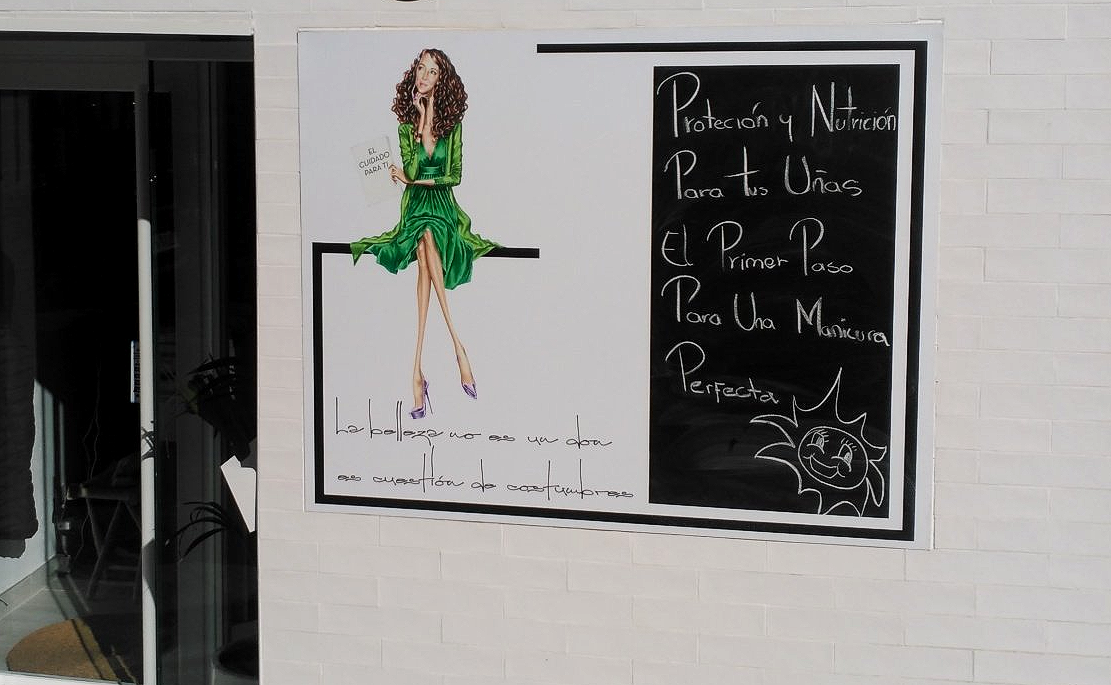 EL
CUIDADO
PARA TI
La belleza no es un don
es cuestión de costumbres
Proteción y Nutrición
Para tus Uñas
El Primer Paso
Para Una Manicura
Perfecta